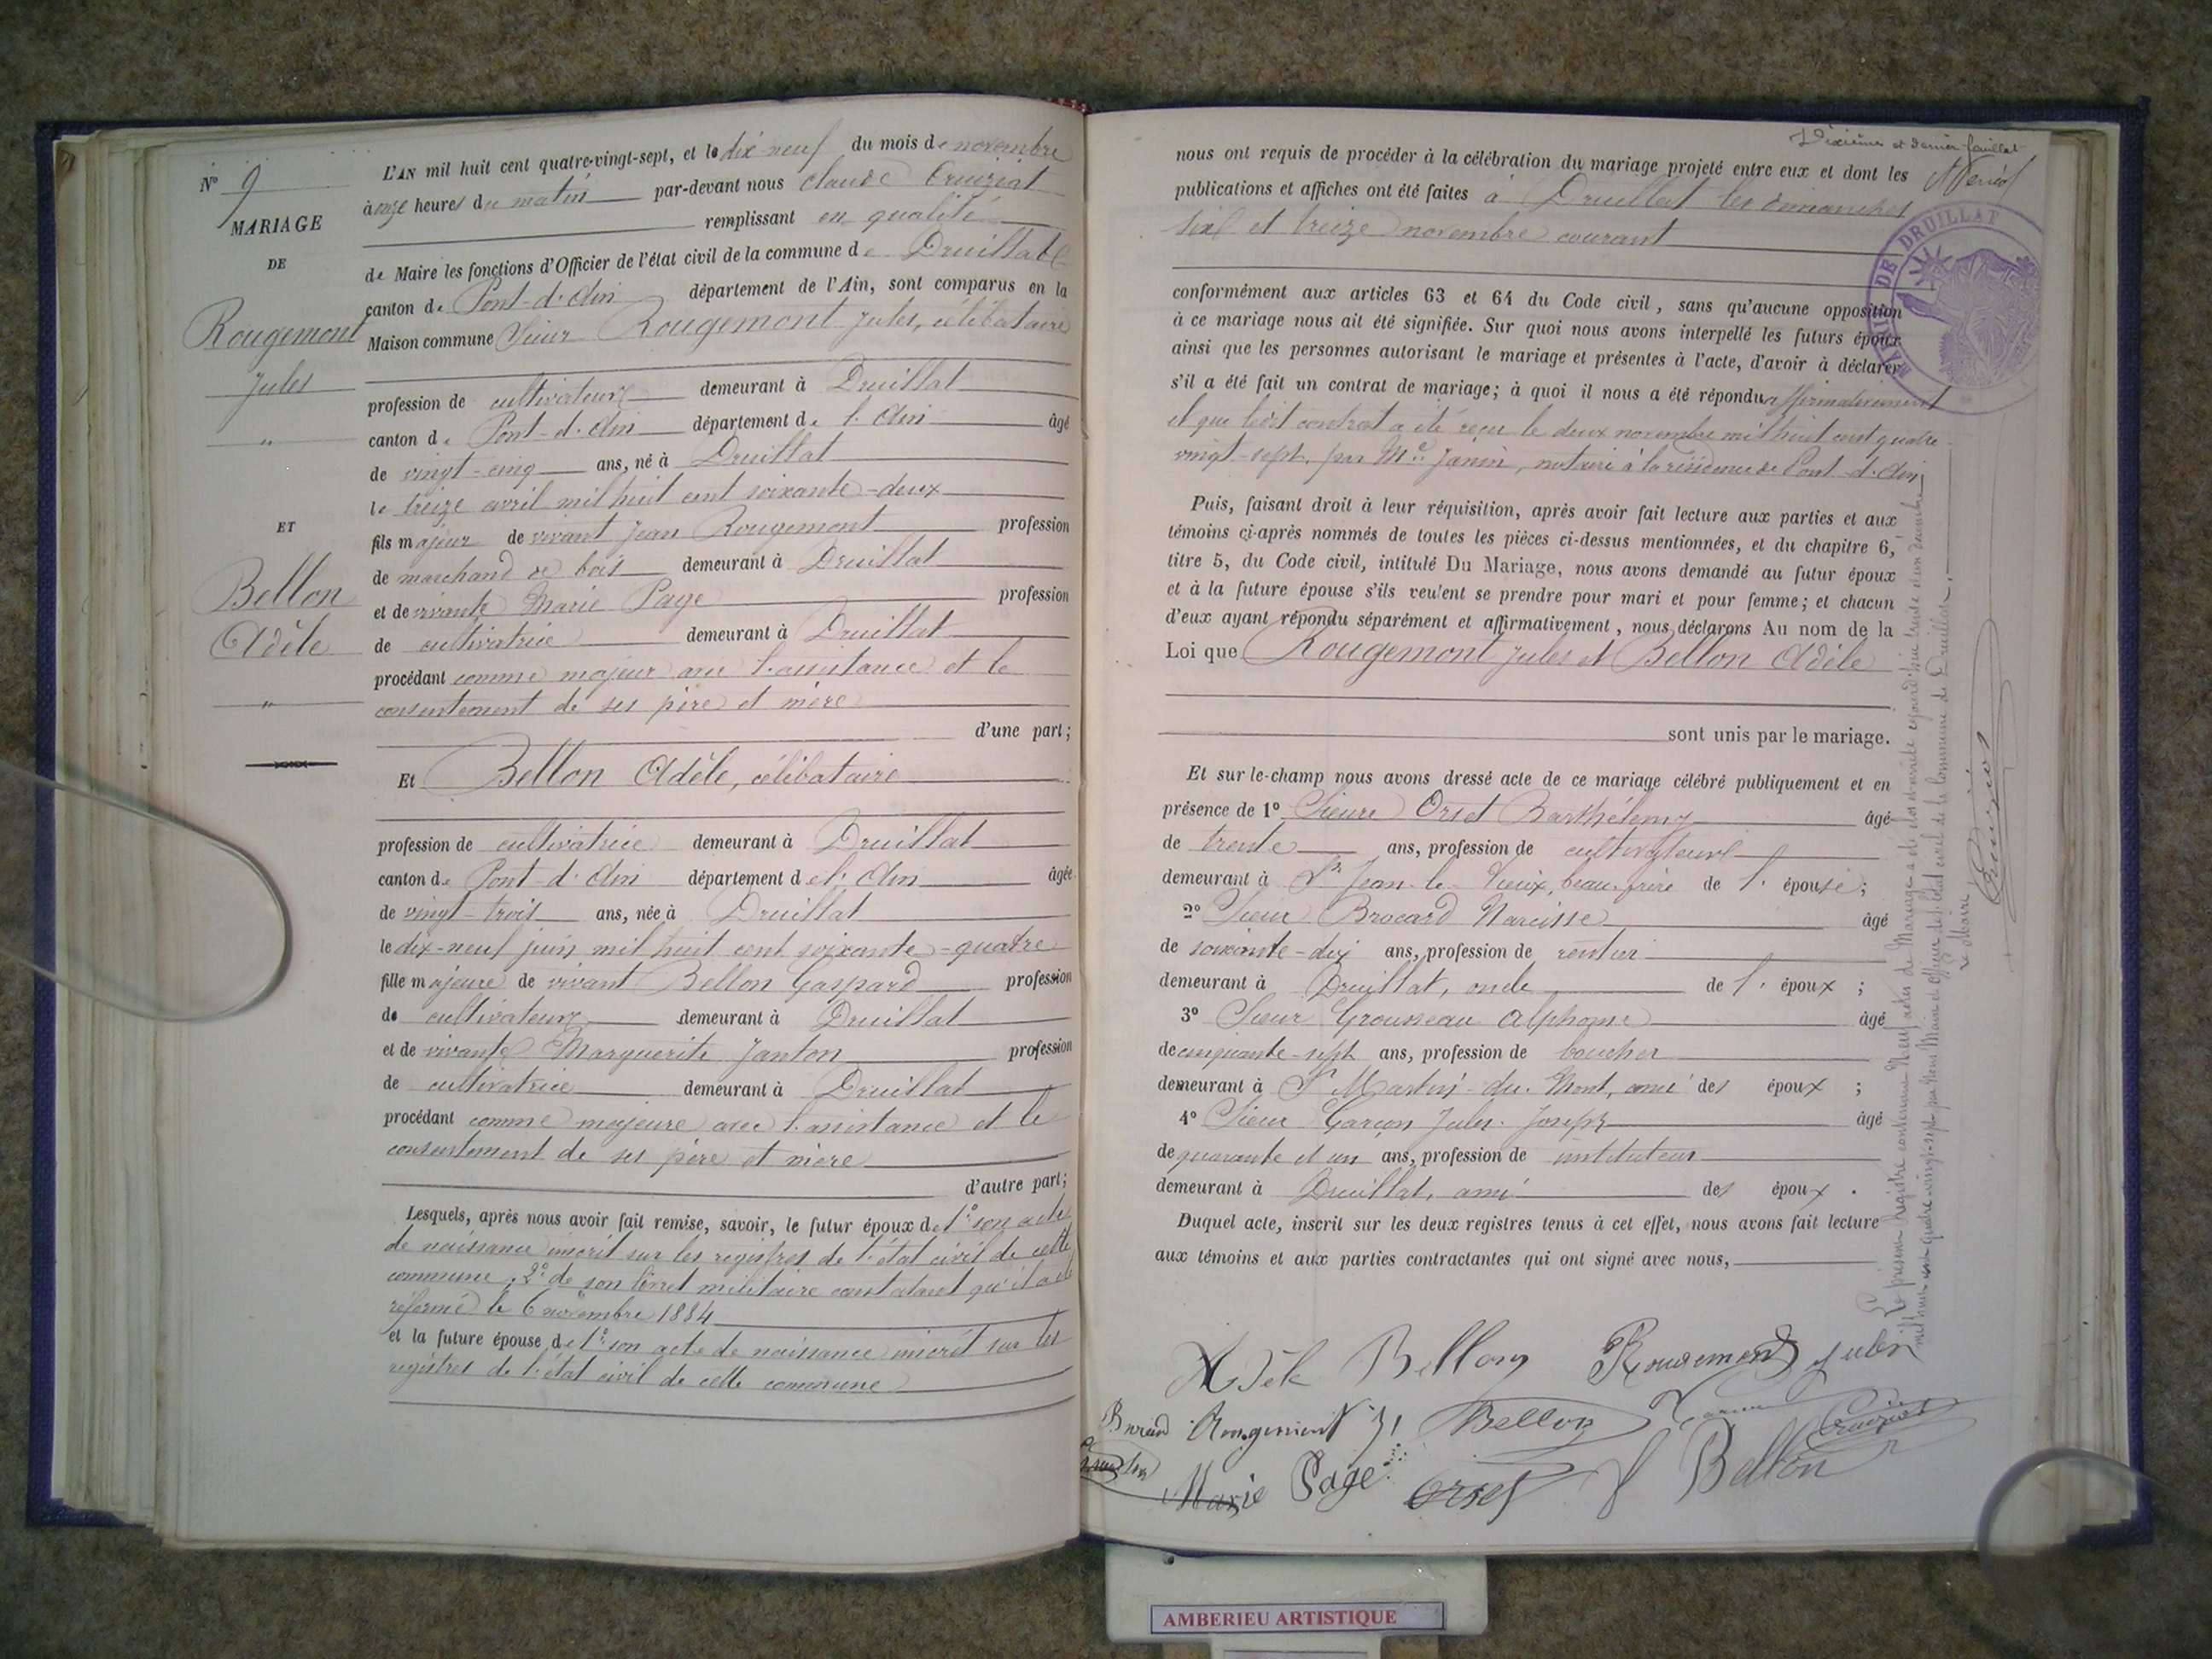 N° 9
MARIAGE
DE
Rougemont
Jules
"
ET
Bellon
Adèle
"
L'AN mil huit cent quatre-vingt-sept, et le dix neuf du mois de novembre
à onze heures du matin par-devant nous Claude Cruiziat
remplissant en qualité
de Maire les fonctions d'Officier de l'état civil de la commune de Druillat
canton de Pont-d'Ain département de l'Ain, sont comparus en la
Maison commune Sieur Rougemont Jules, célibataire
profession de cultivateur demeurant à Druillat
canton de Pont-d'Ain département de l'Ain âgé
de vingt-cinq ans, né à Druillat
le treize avril mil huit cent soixante-deux
fils majeur de vivant Jean Rougemont profession
de marchand de bois demeurant à Druillat
et de vivante Marie Page profession
de cultivatrice demeurant à Druillat
procédant comme majeur avec l'assistance et le
consentement de ses père et mère
d'une part;
Et Bellon Adèle, célibataire
profession de cultivatrice demeurant à Druillat
canton de Pont-d'Ain département de l'Ain âgée
de vingt-trois ans, née à Druillat
le dix-neuf juin mil huit cent soixante-quatre
fille majeure de vivant Bellon Gaspard profession
de cultivateur demeurant à Druillat
et de vivante Marguerite Janton profession
de cultivatrice demeurant à Druillat
procédant comme majeure avec l'assistance et le
consentement de ses père et mère
d'autre part;
Lesquels, après nous avoir fait remise, savoir, le futur époux de 1° son acte
de naissance inscrit sur les registres de l'état civil de cette
commune, 2° de son livret militaire constatant qu'il a été
réformé le 6 novembre 1884
et la future épouse de 1° son acte de naissance inscrit sur les
registres de l'état civil de cette commune
Dixième et dernier feuillet
nous ont requis de procéder à la célébration du mariage projeté entre eux et dont les
publications et affiches ont été faites à Druillat les dimanches
six et treize novembre courant
MAIRIE DE DRUILLAT
conformément aux articles 63 et 64 du Code civil, sans qu'aucune opposition
à ce mariage nous ait été signifiée. Sur quoi nous avons interpellé les futurs époux
ainsi que les personnes autorisant le mariage et présentes à l'acte, d'avoir à déclarer
s'il a été fait un contrat de mariage; à quoi il nous a été répondu affirmativement
et que ledit contrat a été reçu le deux novembre mil huit cent quatre
vingt-sept, par Me Janin, notaire à la résidence de Pont-d'Ain
Puis, faisant droit à leur réquisition, après avoir fait lecture aux parties et aux
témoins ci-après nommés de toutes les pièces ci-dessus mentionnées, et du chapitre 6,
titre 5, du Code civil, intitulé Du Mariage, nous avons demandé au futur époux
et à la future épouse s'ils veulent se prendre pour mari et pour femme; et chacun
d'eux ayant répondu séparément et affirmativement, nous déclarons Au nom de la
Loi que Rougemont Jules et Bellon Adèle
sont unis par le mariage.
Et sur-le-champ nous avons dressé acte de ce mariage célébré publiquement et en
présence de 1° Sieur Orset Barthélemy âgé
de trente ans, profession de cultivateur
demeurant à St Jean-le-Vieux, beau-frère de l'épouse;
2° Sieur Brocard Narcisse âgé
de soixante-dix ans, profession de rentier
demeurant à Druillat, oncle de l'époux;
3° Sieur Grousseau Alphonse âgé
de cinquante-sept ans, profession de boucher
demeurant à St Martin-du-Mont, ami des époux;
4° Sieur Garçon Jules-Joseph âgé
de quarante et un ans, profession de instituteur
demeurant à Druillat, ami des époux.
Duquel acte, inscrit sur les deux registres tenus à cet effet, nous avons fait lecture
aux témoins et aux parties contractantes qui ont signé avec nous,
Adèle Bellon Rougemond Jules
Rougemont Bellon
Marie Page Orset Bellon
Le présent registre contenant neuf actes de Mariage a été clos et arrêté aujourd'hui trente et un décembre
mil huit cent quatre-vingt-sept par Nous Maire et officier de l'état civil de la commune de Druillat.
Le Maire
AMBERIEU ARTISTIQUE